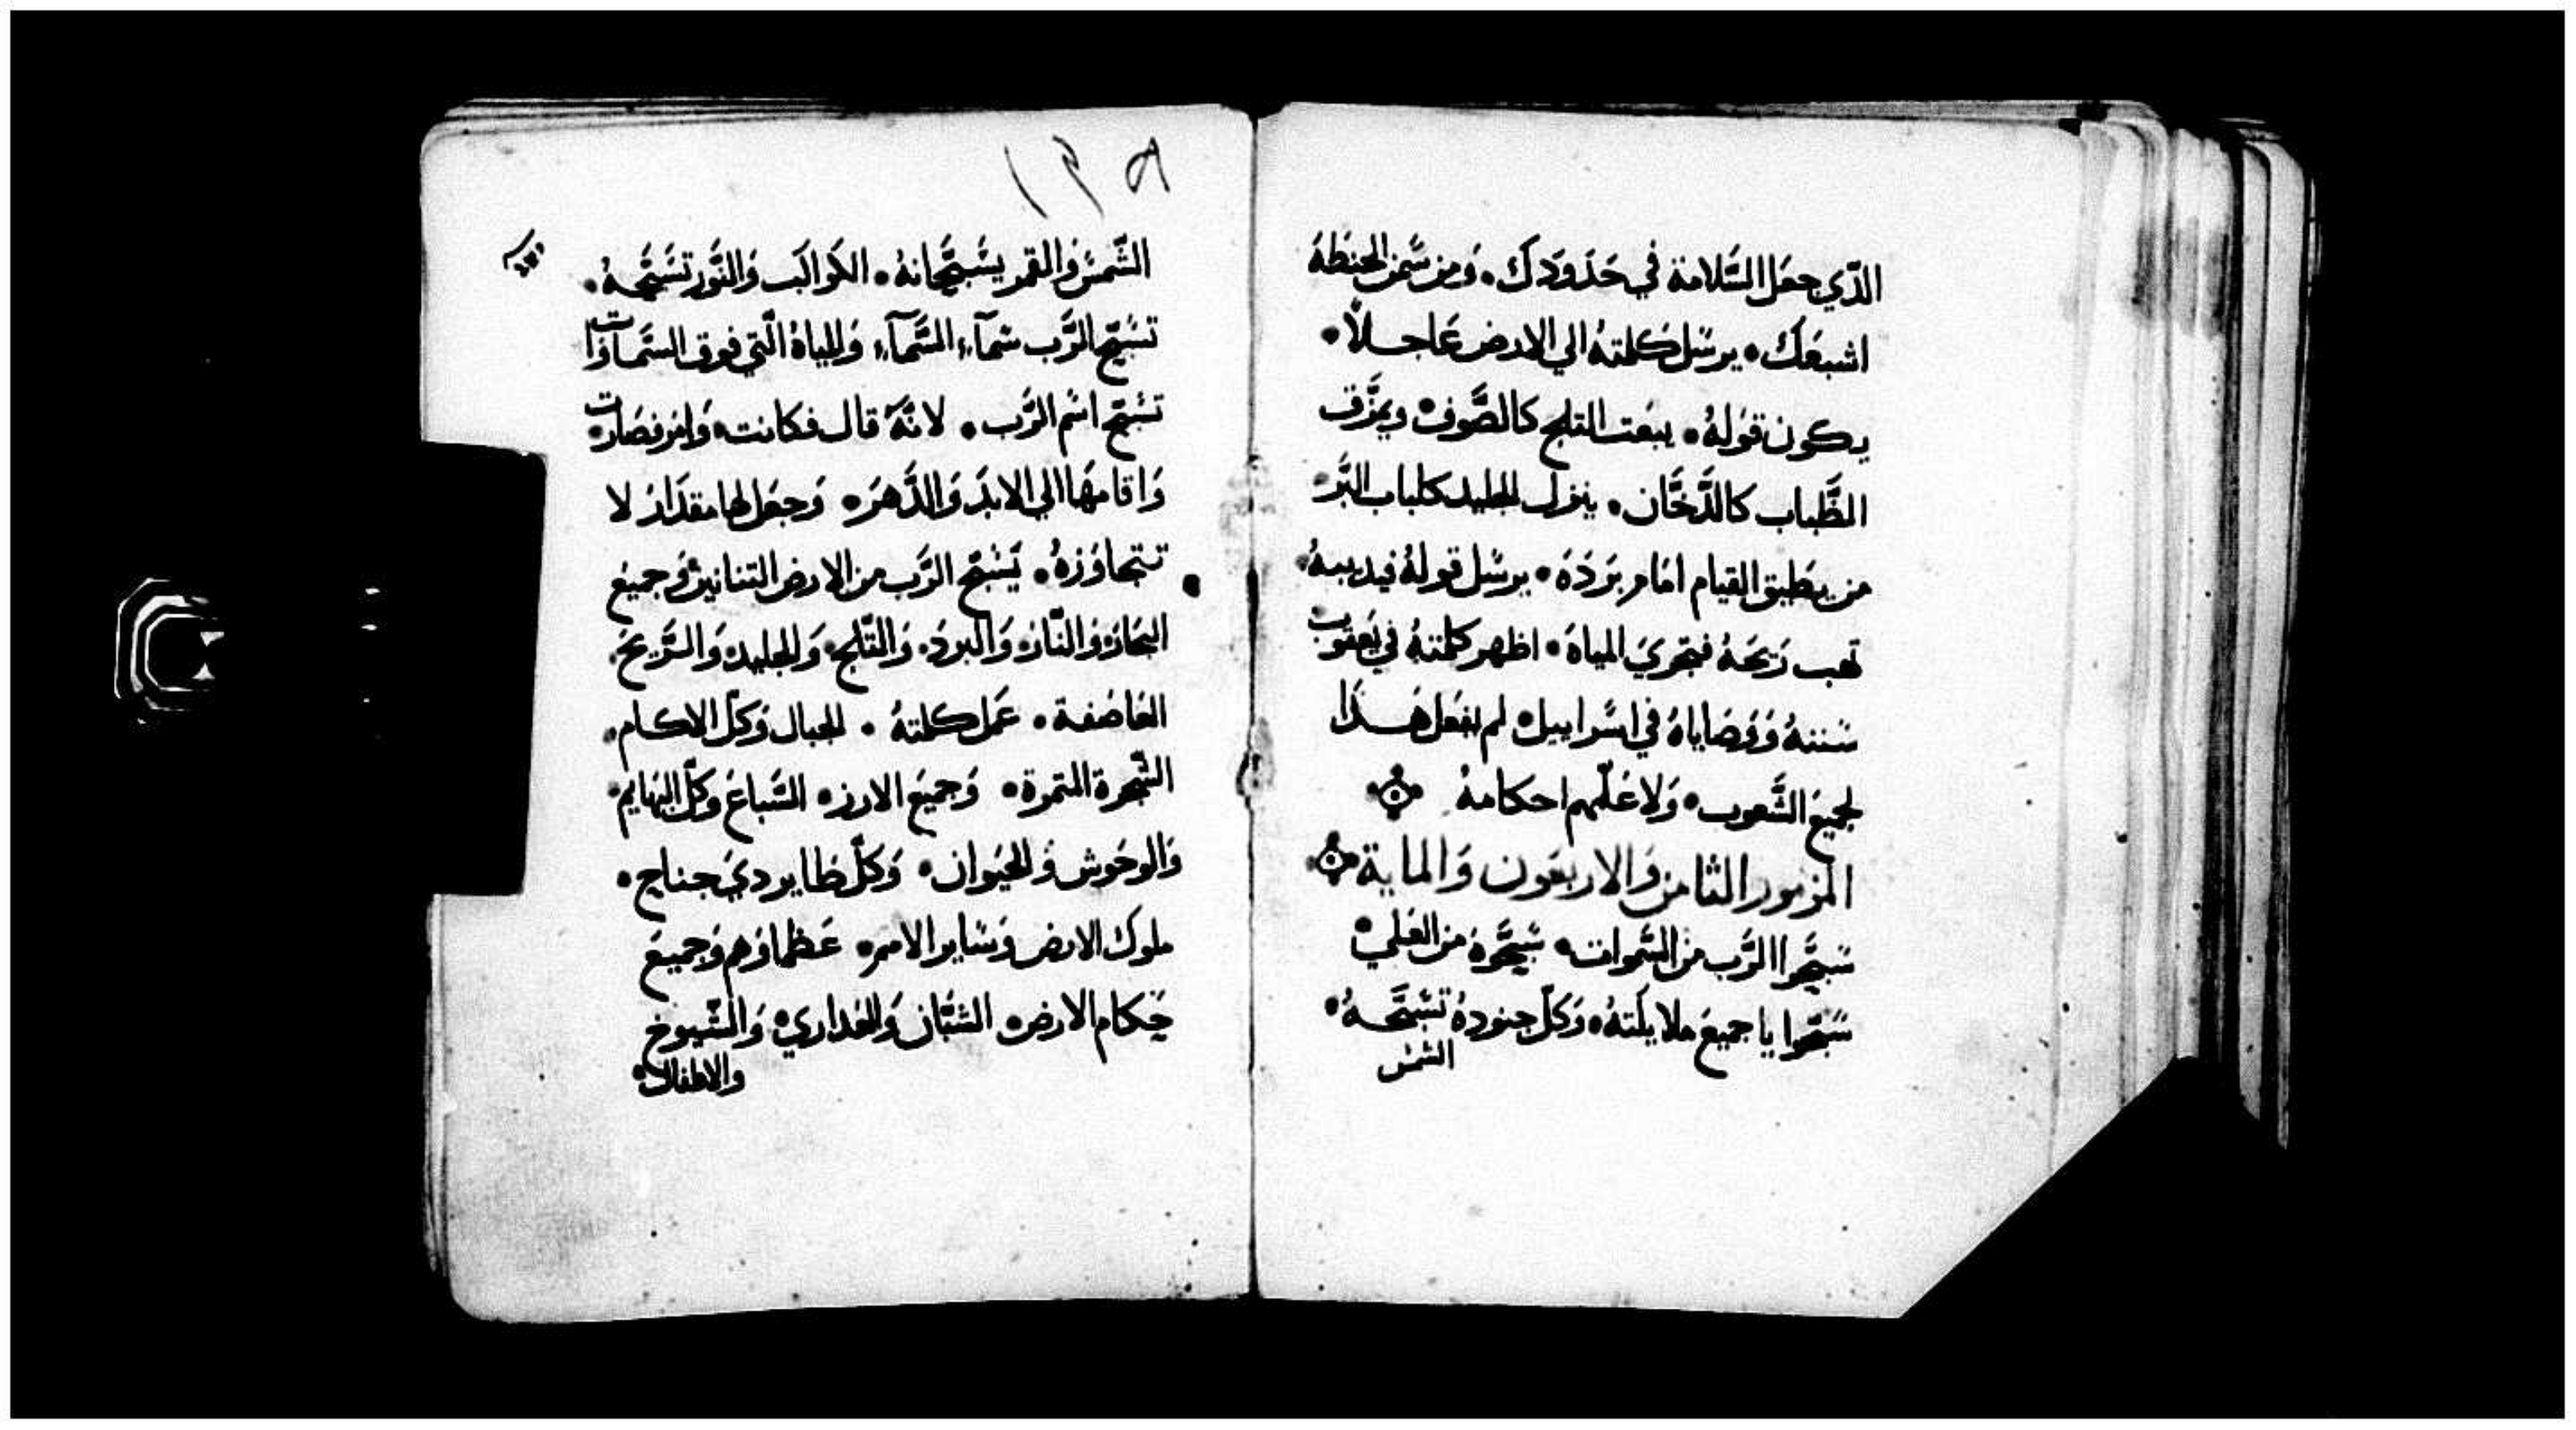 الذي جعل السلامة في حدودك. ومن سمن الحنطة
اشبعك. يرسل كلمته الي الارض عاجلاً.
يكون قوله. يبعت التلج كالصوف. ويمزق
الظباب كالدخان. ينزل الجليد كلباب البر
من يطيق القيام امام برده. يرسل قوله فيديبه
تهب ريحه فتجري المياه. اظهر كلمته في يعقوب
سننه ووصاياه في اسراييل. لم يفعل هذا
لجميع الشعوب. ولا علمهم احكامه
المزمور الثامن والاربعون والماية
سبحوا الرب من السموات. سبحوه من العلي.
سبحوا يا جميع ملايكته. وكل جنوده تسبحه.
الشمس
١٣٨
الشمس والقمر يسبحانه. الكواكب والنور تسبحه.
تسبح الرب سمآء السمآء، والمياه التي فوق السماوات
تسبح اسم الرب. لانه قال فكانت. وامر فصارت.
واقامها الي الابد والدهر. وجعل لها مقدار لا
تتجاوزه. يسبح الرب من الارض التنانين وجميع
البحار. والنار. والبرد. والتلج. والجليد. والريح.
العاصفة. عمل كلمته. الجبال وكل الاكام.
الشجرة المتمرة. وجميع الارز. السباع وكل البهايم.
والوحوش والحيوان. وكل طاير دي جناح.
ملوك الارض وساير الامم. عظماوهم وجميع
حكام الارض. الشبان والعداري. والشيوخ
والاطفال.